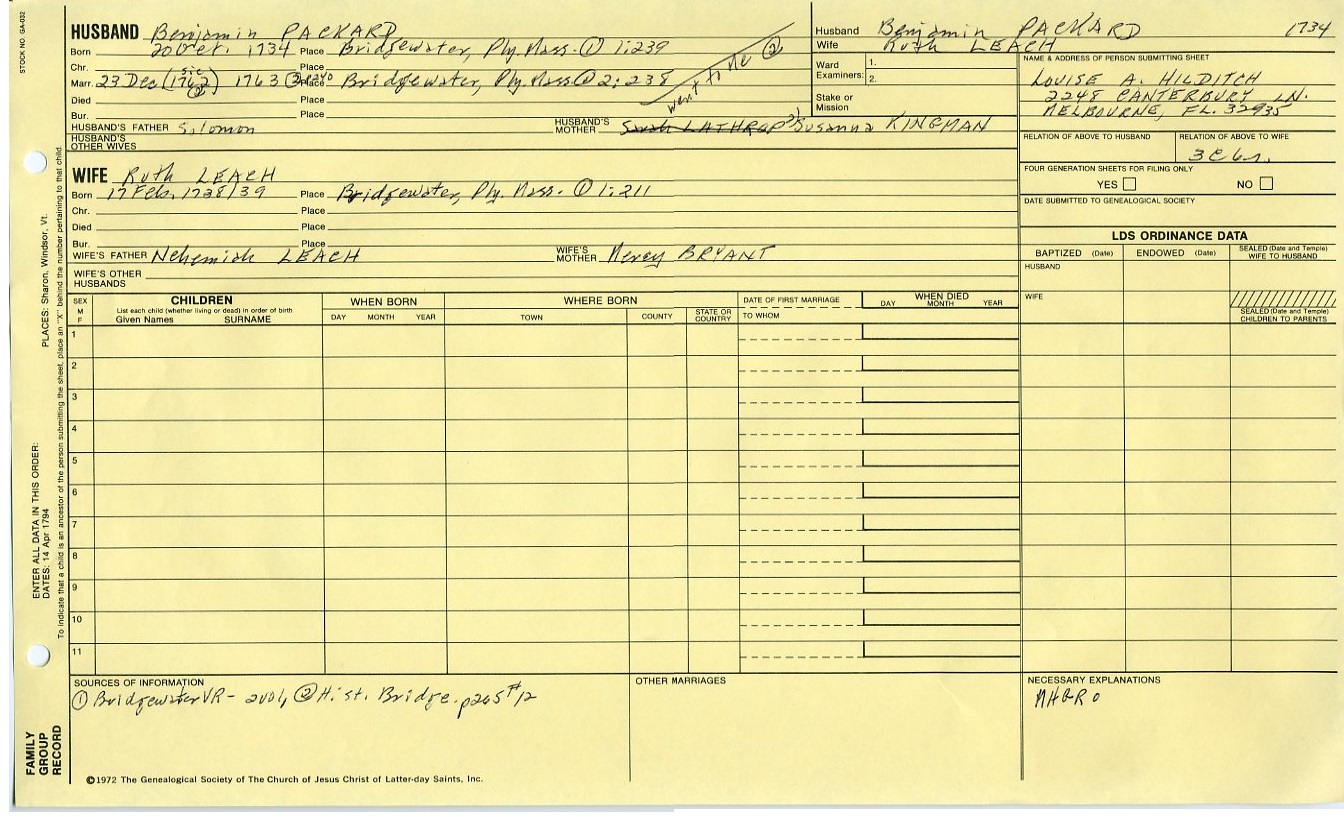 STOCK NO. GA-032
HUSBAND Benjamin PACKARD
Born 20 Oct. 1734 Place Bridgewater, Ply. Mass. ① 1:239
Chr. Place
Marr. 23 Dec (1762 sic) ② 1763 Place Bridgewater, Ply. Mass ① 2:238
went to Me ②
Died Place
Bur. Place
HUSBAND'S FATHER Solomon HUSBAND'S MOTHER Sarah LATHROP? Susanna KINGMAN
HUSBAND'S OTHER WIVES
WIFE Ruth LEACH
Born 17 Feb. 1738/39 Place Bridgewater, Ply. Mass. ① 1:211
Chr. Place
Died Place
Bur. Place
WIFE'S FATHER Nehemiah LEACH WIFE'S MOTHER Mercy BRYANT
WIFE'S OTHER HUSBANDS
Husband Benjamin PACKARD 1734
Wife Ruth LEACH
Ward Examiners: 1.
2.
Stake or Mission
NAME & ADDRESS OF PERSON SUBMITTING SHEET
LOUISE A. HILDITCH
2248 CANTERBURY LN.
MELBOURNE, FL. 32935
RELATION OF ABOVE TO HUSBAND RELATION OF ABOVE TO WIFE
FOUR GENERATION SHEETS FOR FILING ONLY
YES NO
DATE SUBMITTED TO GENEALOGICAL SOCIETY
LDS ORDINANCE DATA
BAPTIZED (Date) ENDOWED (Date) SEALED (Date and Temple) WIFE TO HUSBAND
HUSBAND
WIFE
SEALED (Date and Temple) CHILDREN TO PARENTS
SEX M F
CHILDREN
List each child (whether living or dead) in order of birth
Given Names SURNAME
WHEN BORN
DAY MONTH YEAR
WHERE BORN
TOWN COUNTY STATE OR COUNTRY
DATE OF FIRST MARRIAGE
TO WHOM
WHEN DIED
DAY MONTH YEAR
1
2
3
4
5
6
7
8
9
10
11
SOURCES OF INFORMATION
① Bridgewater VR - 2 vol, ② Hist. Bridge. p265 #12
OTHER MARRIAGES
NECESSARY EXPLANATIONS
©1972 The Genealogical Society of The Church of Jesus Christ of Latter-day Saints, Inc.
FAMILY GROUP RECORD
ENTER ALL DATA IN THIS ORDER:
DATES: 14 Apr 1794
PLACES: Sharon, Windsor, Vt.
To indicate that a child is an ancestor of the person submitting the sheet, place an "X" behind the number pertaining to that child.